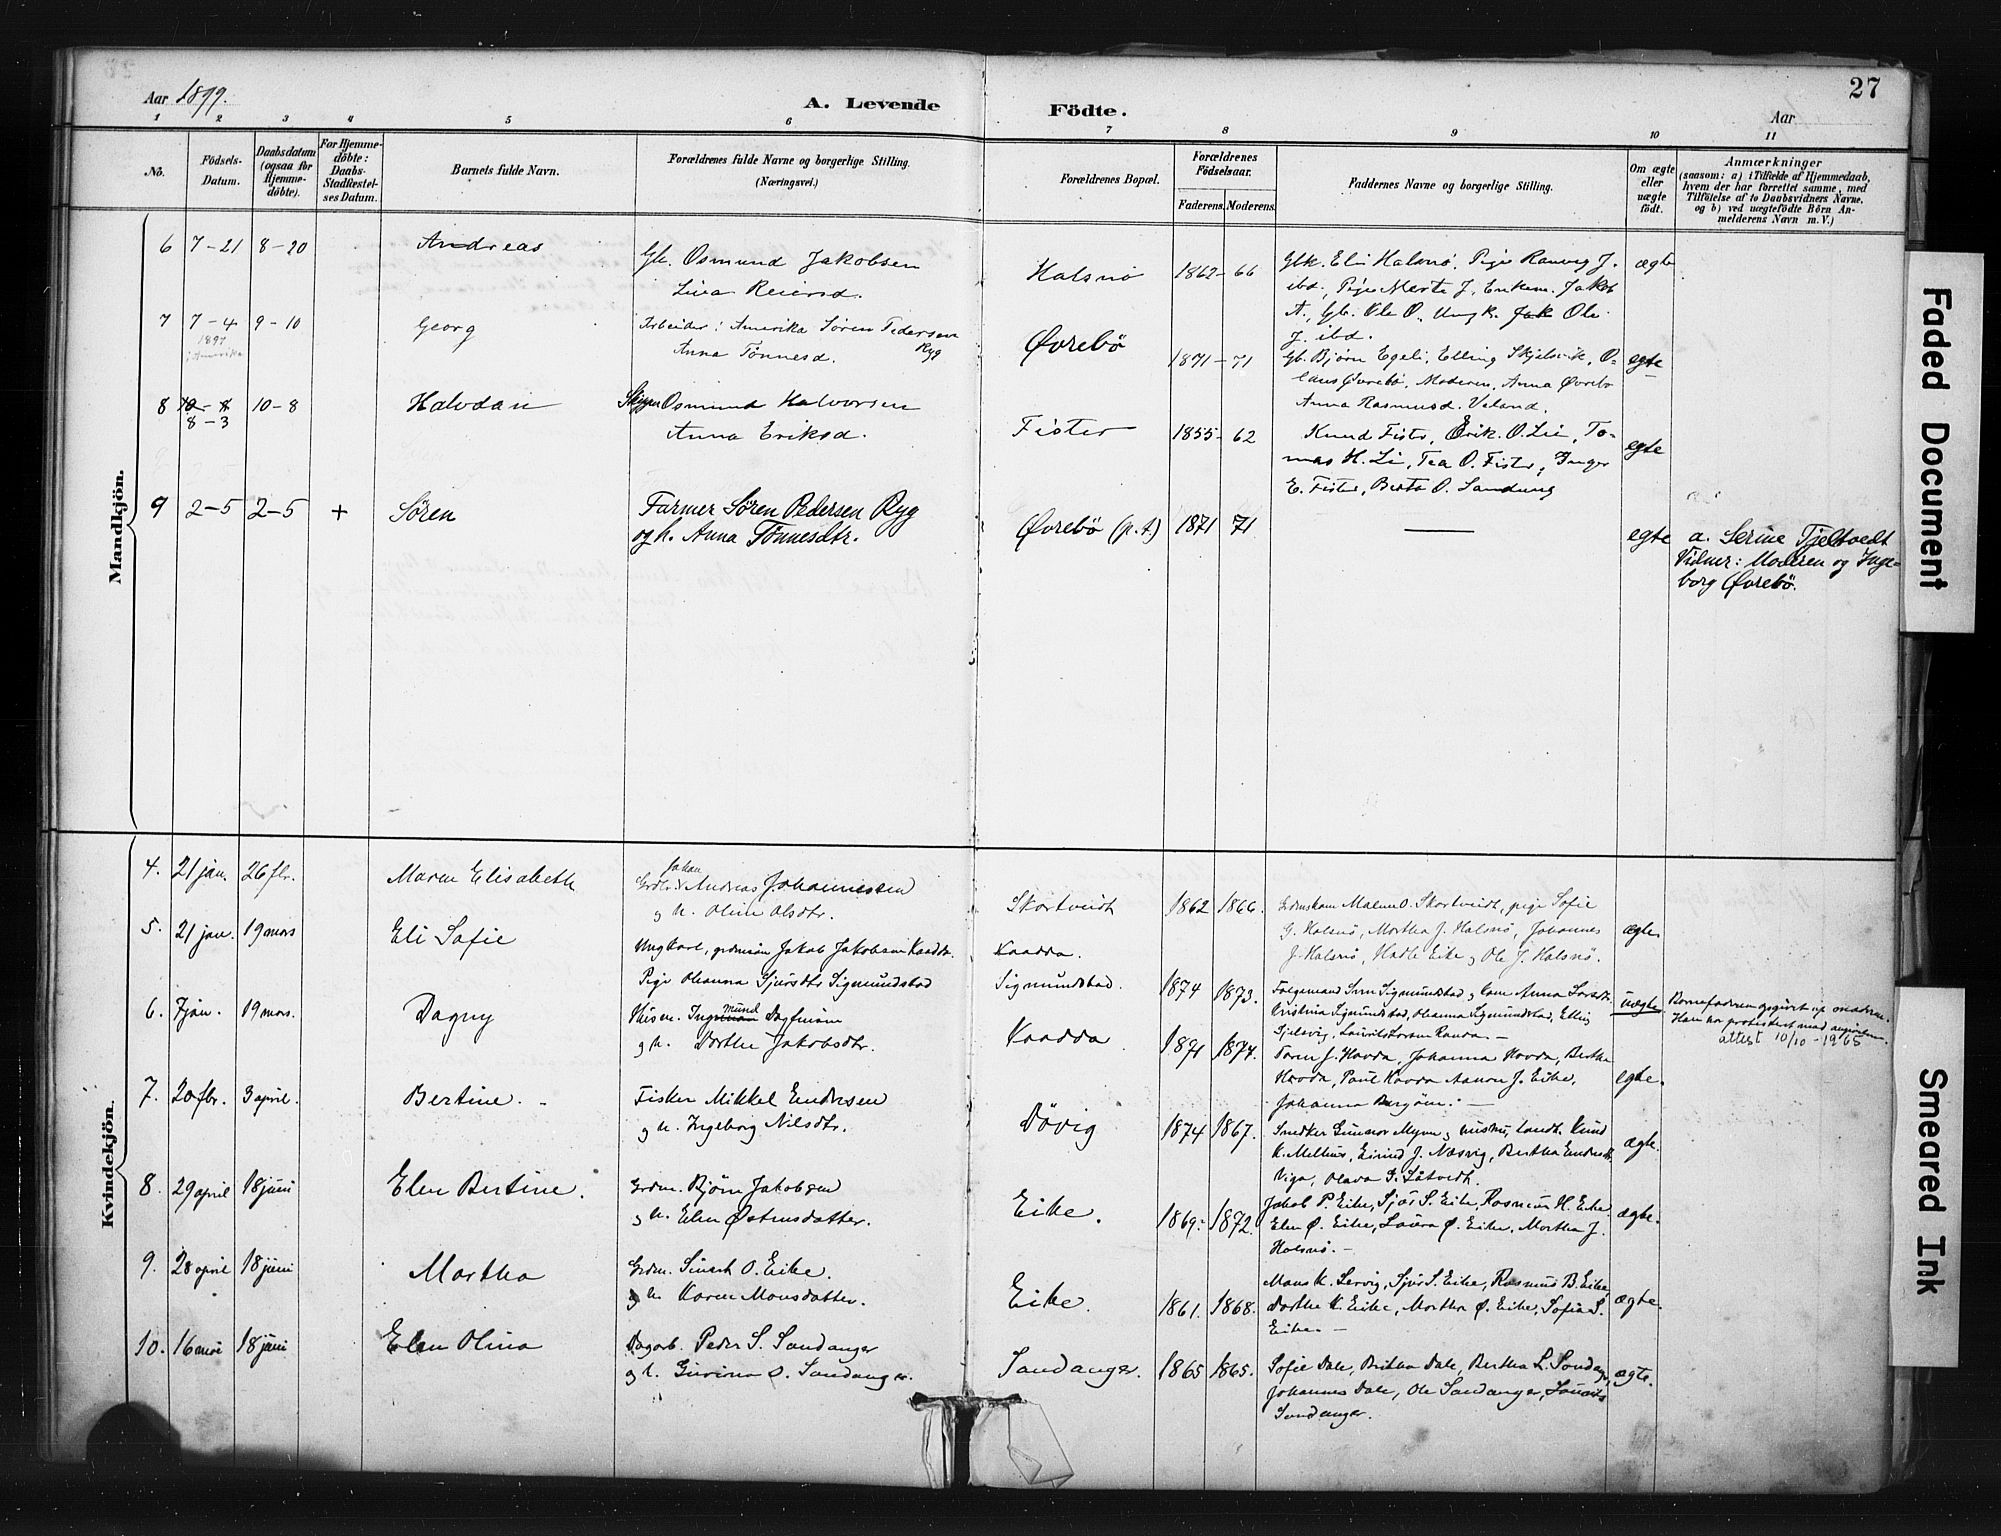 27
Aar 1899.
A. Levende Födte.
Aar
1 2 3 4 5 6 7 8 9 10 11
No.
Födsels-Datum.
Daabsdatum (ogsaa for Hjemmedöbte).
For Hjemmedöbte: Daabs-Stadfæstelses Datum.
Barnets fulde Navn.
Forældrenes fulde Navne og borgerlige Stilling. (Næringsvei.)
Forældrenes Bopæl.
Forældrenes Födselsaar.
Faderens. Moderens.
Faddernes Navne og borgerlige Stilling.
Om ægte eller uægte födt.
Anmærkninger
(saasom: a) i Tilfælde af Hjemmedaab, hvem der har forrettet samme, med Tilföielse af to Daabsvidners Navne, og b) ved uægtefödte Börn Anmelderens Navn m. V.)
Mandkjön.
6 7-21 8-20 Andreas Gb. Osmund Jakobsen
Lina Reiersd.
Halsnö 1862-66 Gbk. Eli Halsnö, Pige Ranveig J.
ibd., Pige Marta J, Enkem. Jakob
A, Gb. Ole O, Ungk. Jak Ole
J. ibd.
ægte
7 7-4 9-10 Georg Arbeider i Amerika Sören Pedersen
1897 i Amerika
Ryg
Anna Tönnesd.
Øvrebö 1871-71 Gb. Björn Egeli, Elling Skjelvik, O-
laus Øvrebö, Moderen, Anna Øvrebö
Anna Rasmusd. Veland.
egte
8 8-3 10-8 Halvdan Skipper Osmund Halvorsen
Anna Eriksd.
Fister 1855-62 Knud Fister, Erik O. Lie, To-
mas H. Li, Tea O. Fister, Inger
E. Fister, Berta O. Sandung
egte
9 2-5 2-5 + Sören Farmer Sören Pedersen Ryg
og h. Anna Tönnesdtr.
Øvrebö (p.t) 1871 71 —
egte a. Serine Tjeltvedt
Vidner: Moderen og Inge-
borg Øvrebö.
Kvindekjön.
4. 21 jan. 26 fbr. Maren Elisabeth
Johan
Andreas Johannessen
og h. Oline Olsdtr.
Skartveidt 1862 1866. Malene O. Skartveidt, pige Sofie
G. Halsnö, Martha J. Halsnö, Johannes
J. Halsnö, Eike, Ole J. Halsnö.
ægte
5. 21 jan. 19 mars Eli Sofie Ungkarl, grdmsön Jakob Jakobsen Kaadda.
Pige Oleanna Sjursdtr Sigmundstad
Kaadda.
Sigmundstad. 1874 1873.
Kristina Sigmundstad, Oleanna Sigmundstad, Elling
Skjelavig,
uægte.
attest 10/10-1965
6. 7 jan. 19 mars. Dagny Husm. Ingmund Dagfinsön
og h. Dorthe Jakobsdtr.
Kaadda 1871 1874. Taren J. Havda, Johanna Havda, Berthe
Havda, Paul Havda Aanen J. Eike,
Johanna
egte.
7. 20 fbr. 3 april. Bertine. Fisker Mikkel Endresen
og h. Ingeborg Nilsdtr.
Dövig 1874 1867.
K. Melhus, Eivind J. Næsvig, Bertha
Viga, Olava G.
ægte.
8. 29 april 18 juni Elen Bertine. Grdm. Björn Jakobsen
og h. Elen Østensdatter.
Eike. 1869. 1872. Jakob P. Eike, Sjur S. Eike, Rasmus H. Eike
Elen Ø. Eike, Laura Ø. Eike, Martha J.
Halsnö. —
ægte.
9. 28 april 18 juni Martha Grdm. Sivert O. Eike.
og h. Karen Monsdatter.
Eike. 1861. 1868. Mons K. Servig, Sjur S. Eike, Rasmus B. Eike
Dorthe K. Eike, Martha Ø. Eike, Sofia S.
Eike. —
ægte.
10. 16 mai 18 juni Elen Olina Dagarb. Peder S. Sandanger
og h. Gurina O. Sandanger.
Sandanger. 1865 1865. Sofie Dale, Britha Dale, Bertha L. Sandanger,
Johannes Dale, Ole Sandanger, Lauritz
Sandanger.
ægte.
Faded Document
Smeared Ink